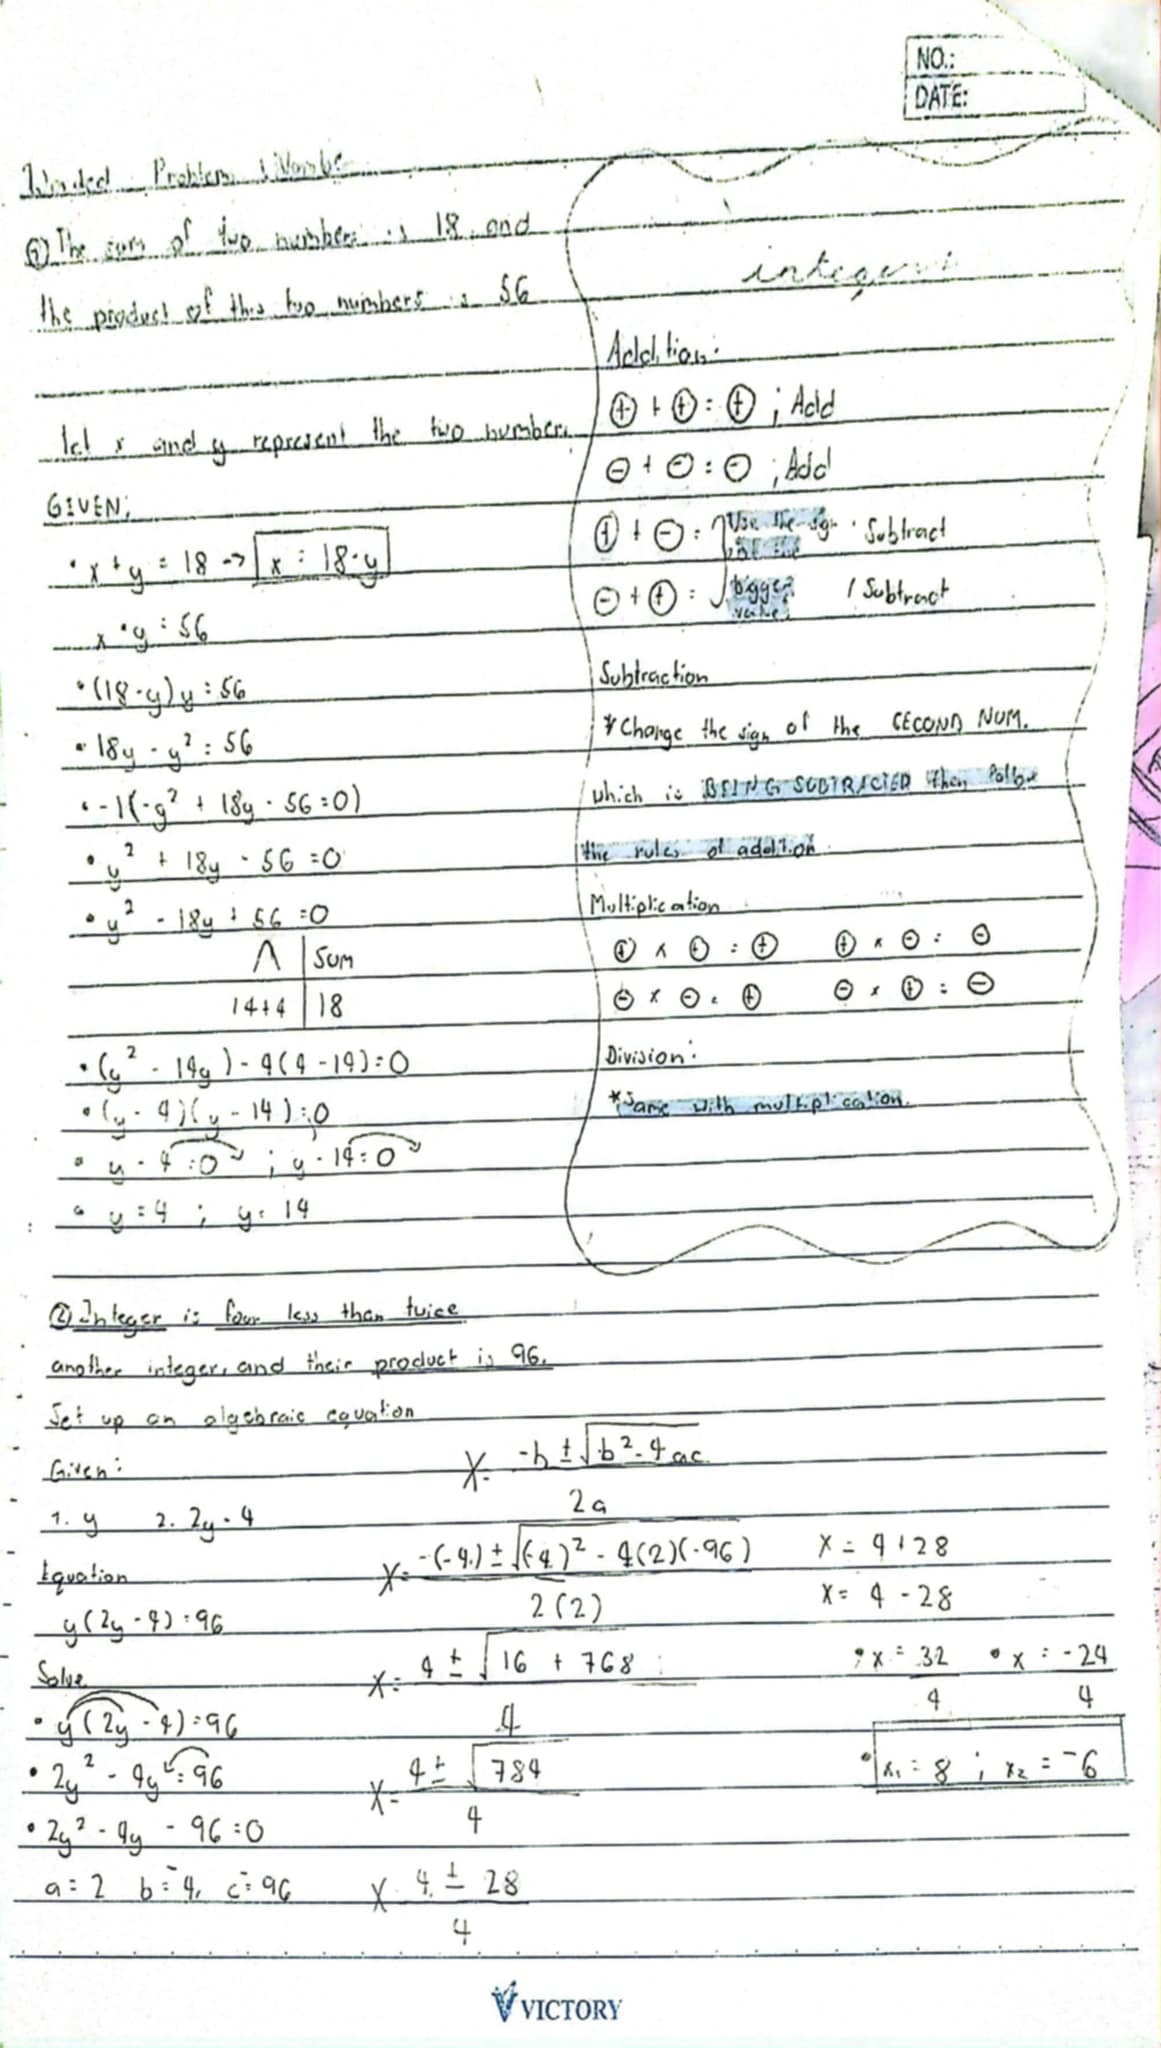 NO.:
DATE:
Worded Problem
The sum of two numbers is 18 and
the product of this two numbers is 56
let x and y represent the two number.
GIVEN:
• x + y = 18 -> x = 18-y
x • y = 56
• (18-y)y = 56
• 18y - y² = 56
• -1(-y² + 18y - 56=0)
• y² + 18y - 56 =0
• y² - 18y + 56 =0
Λ | SUM
14+4 | 18
• (y² - 14y) - 4(4-14)=0
• (y-4)(y-14)=0
• y - 4 =0 ; y - 14=0
• y = 4 ; y = 14
integers
Addition:
(+) + (+) = (+) ; Add
(-) + (-) = (-) ; Add
(+) + (-) = Use the sign Subtract
(-) + (+) = bigger value. / Subtract
Subtraction
* Change the sign of the SECOND NUM.
which is BEING SUBTRACTED then follow
the rules of addition.
Multiplication
(+) x (+) = (+) (+) x (-) = (-)
(-) x (-) = (+) (-) x (+) = (-)
Division:
*Same with multiplication.
② Integer is four less than twice
another integer, and their product is 96.
Set up an algebraic equation
Given:
1. y 2. 2y-4
Equation
y(2y-4)=96
Solve
• y(2y-4)=96
• 2y² - 4y = 96
• 2y² - 4y - 96=0
a=2 b=-4, c=-96
x= -b ± √b²-4ac / 2a
x= -(-4) ± √(-4)² - 4(2)(-96) / 2(2)
x= 4 ± √16 + 768 / 4
x= 4 ± √784 / 4
x 4 ± 28 / 4
x = 4+28
x = 4-28
• x = 32/4 • x = -24/4
• x₁ = 8 ; x₂ = -6
VICTORY